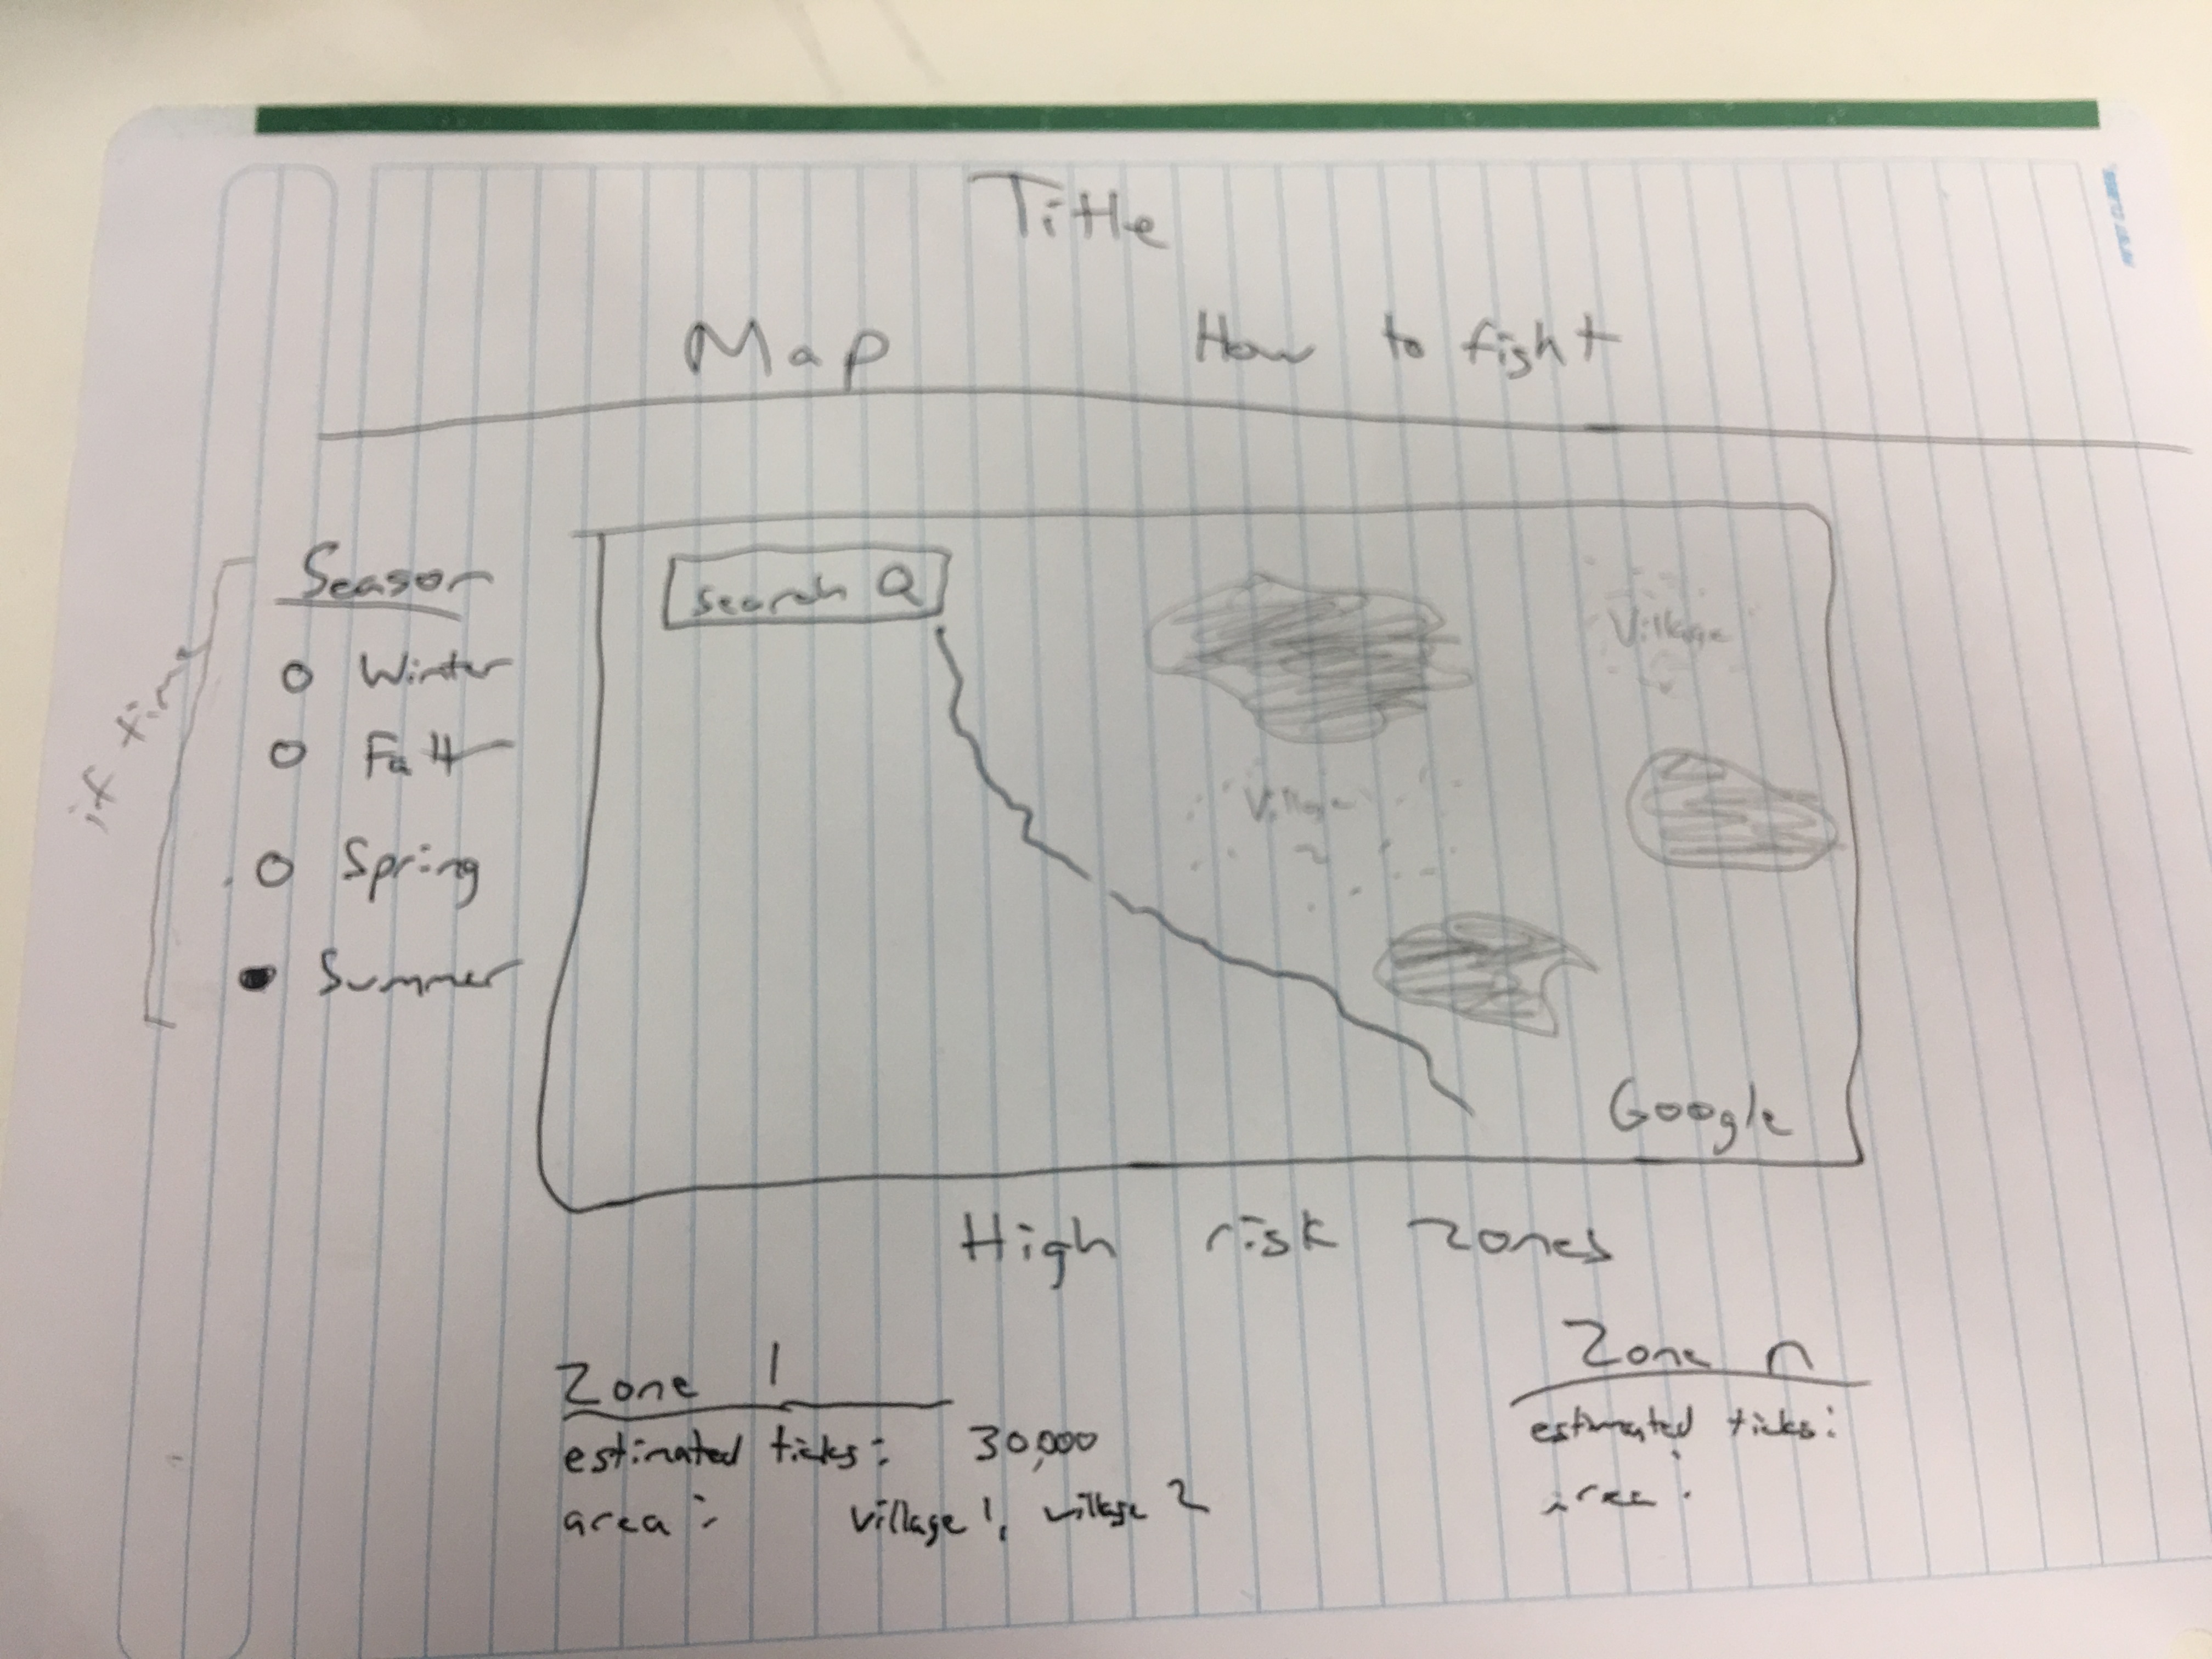 Title
Map How to fight
if time
Season
Winter
Fall
Spring
Summer
search
Village
Village
Google
High risk zones
Zone 1
estimated ticks: 30,000
area: village 1, village 2
Zone n
estimated ticks:
area: